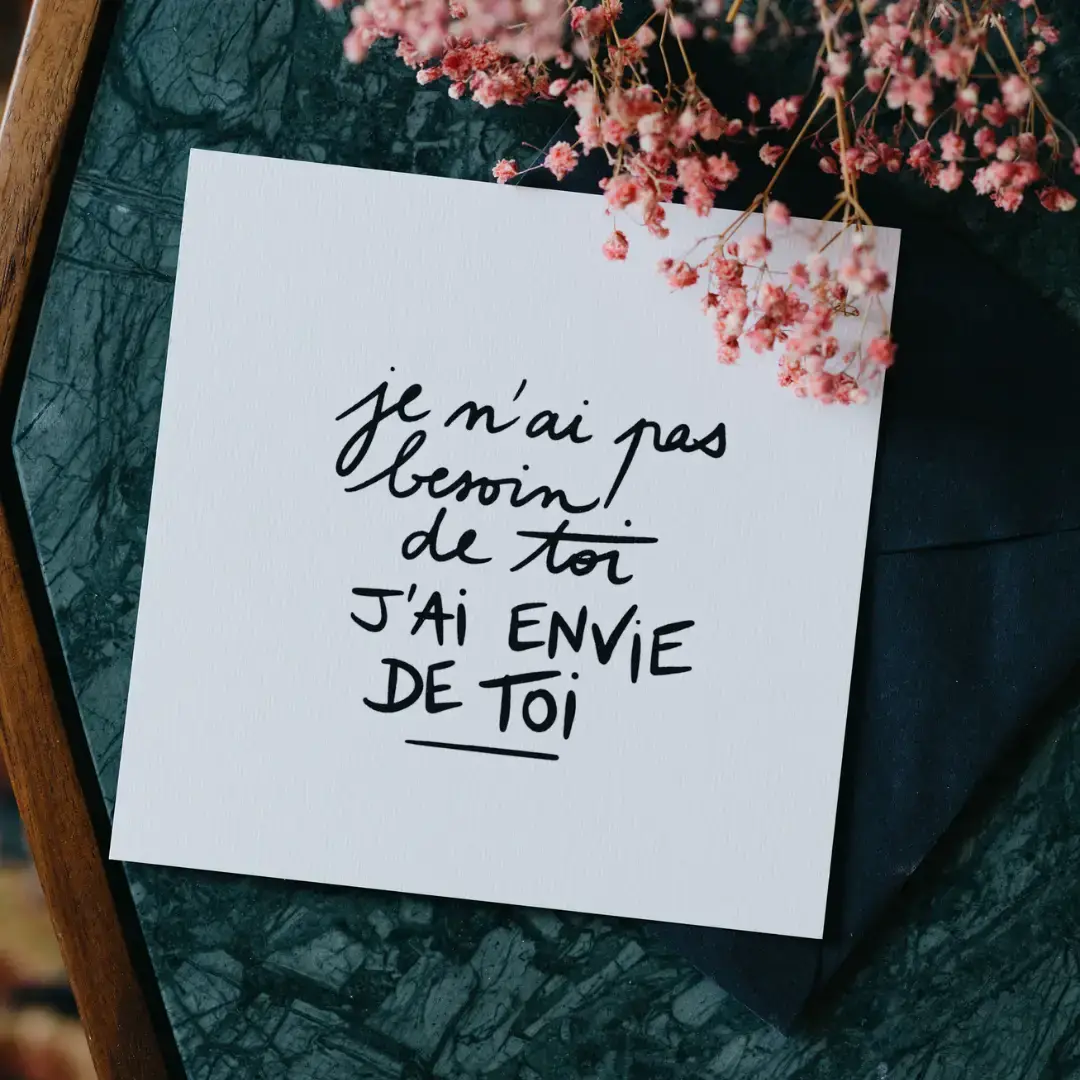 je n'ai pas
besoin
de toi
J'Ai ENViE
DE TOi